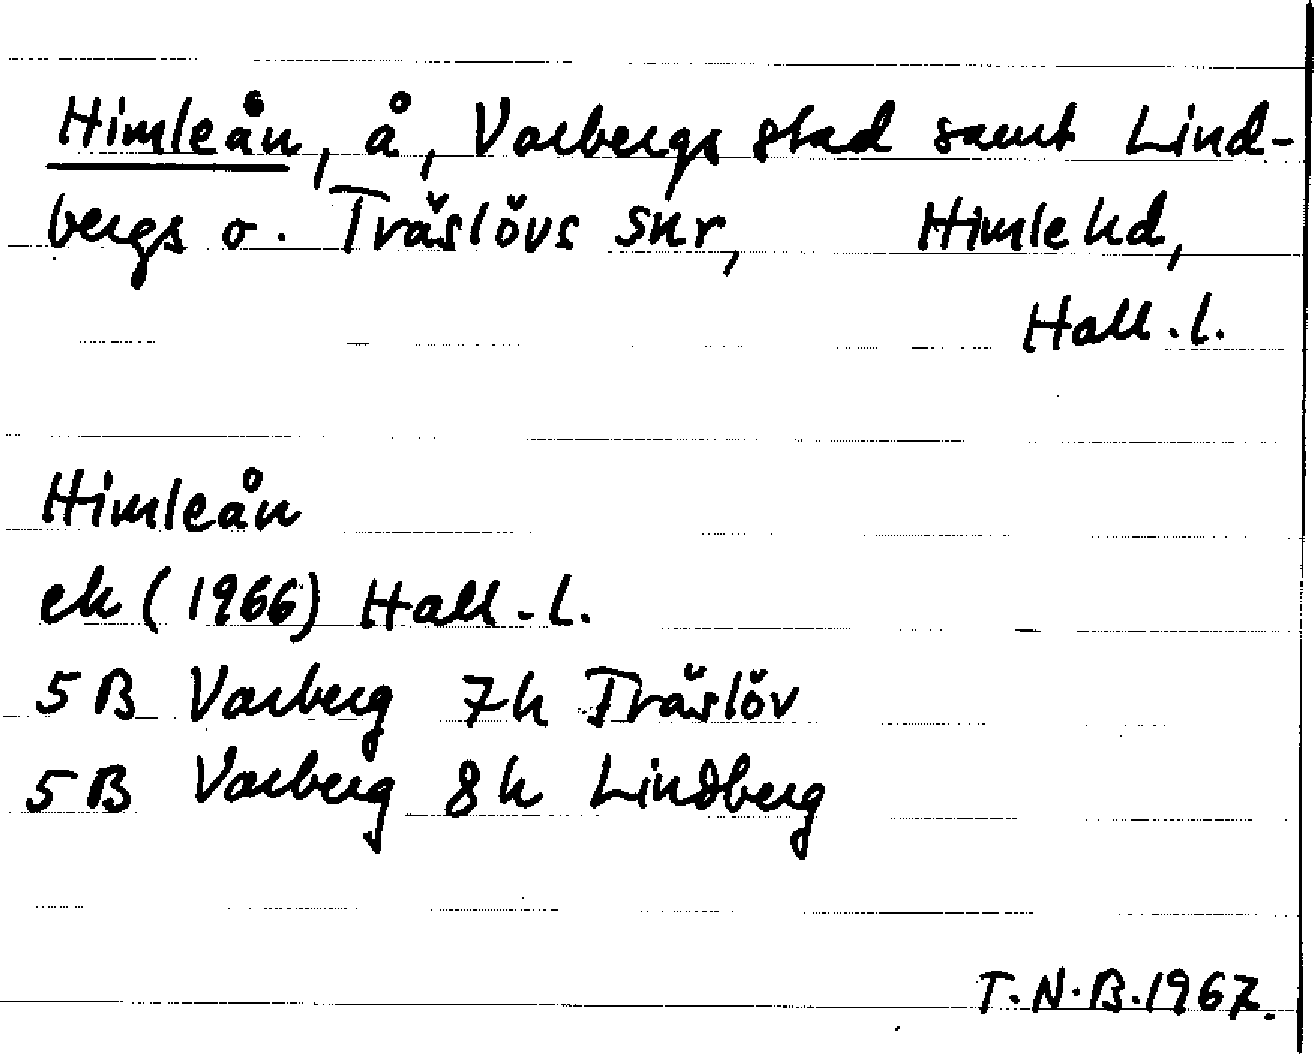 Himleån, å, Varbergs stad samt Lind-
bergs o. Träslövs snr, Himle hd,
Hall. l.
Himleån
ek (1966) Hall. l.
5 B Varberg 7h Träslöv
5 B Varberg 8h Lindberg
T.N.B.1967.